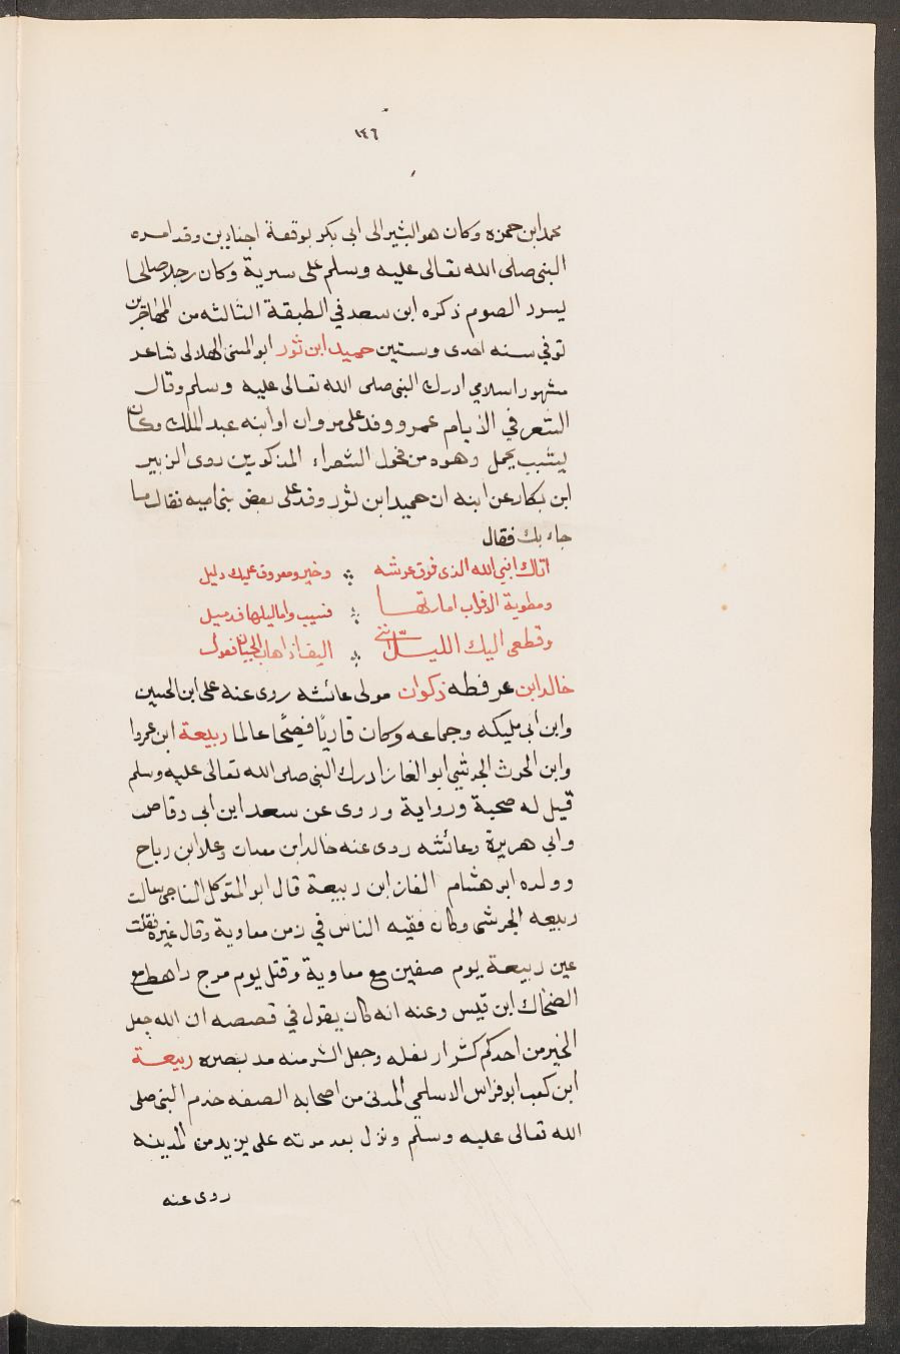 ١٤٦
محمد ابن حمزه وكان هو البشير الى ابى بكر بوقعة اجنادين وقد امره
النبى صلى الله تعالى عليه وسلم على سرية وكان رجلا صالحا
يسرد الصوم ذكره ابن سعد في الطبقة الثالثه من المهاجرين
توفي سنه احدى وستين حميد ابن ثور ابو المثنى الهلالى شاعر
مشهور اسلامي ادرك النبى صلى الله تعالى عليه وسلم وقال
الشعر في الايام عمر ووفد على مروان او ابنه عبد الملك وكان
يشبب بجمل وهوه من فحول الشعراء المذكورين روى الزبير
ابن بكار عن ابنه ان حميد ابن ثور وفد على بعض بنى اميه فقال ما
جاء بك فقال
اتاك ابي الله الذى فوق عرشه وخير ومعروف عليك دليل
ومطوية الاقراب اما نهارها فسيب واما ليلها فدميل
وقطعى اليك الليل
خالد ابن عرفطه ذكوان مولى عائشه روى عنه على ابن الحسين
وابن ابى مليكه وجماعه وكان قاريًا فصيحًا عالما ربيعة ابن عمروا
وابن الحرث الجرشي ابو الغاز ادرك النبى صلى الله تعالى عليه وسلم
قيل له صحبة ورواية وروى عن سعد ابن ابى وقاص
وابي هريرة وعائشه روى عنه خالد ابن معدان وعلا ابن رباح
وولده ابو هشام الغاز ابن ربيعة قال ابو المتوكل الناجى سالت
ربيعه الجرشى وكان فقيه الناس في زمن معاوية وقال غيره فقلت
عين ربيعة يوم صفين مع معاوية وقتل يوم مرج راهط مع
الضحاك ابن قيس وعنه انه كان يقول في قصصه ان الله جعل
الخير من احدكم كشراك نعله وجعل الشر منه مد بصره ربيعة
ابن كعب ابو فراس الاسلمي المدنى من اصحابه الصفه خدم النبى صلى
الله تعالى عليه وسلم ونزل بعد موته على بريد من المدينه
روى عنه